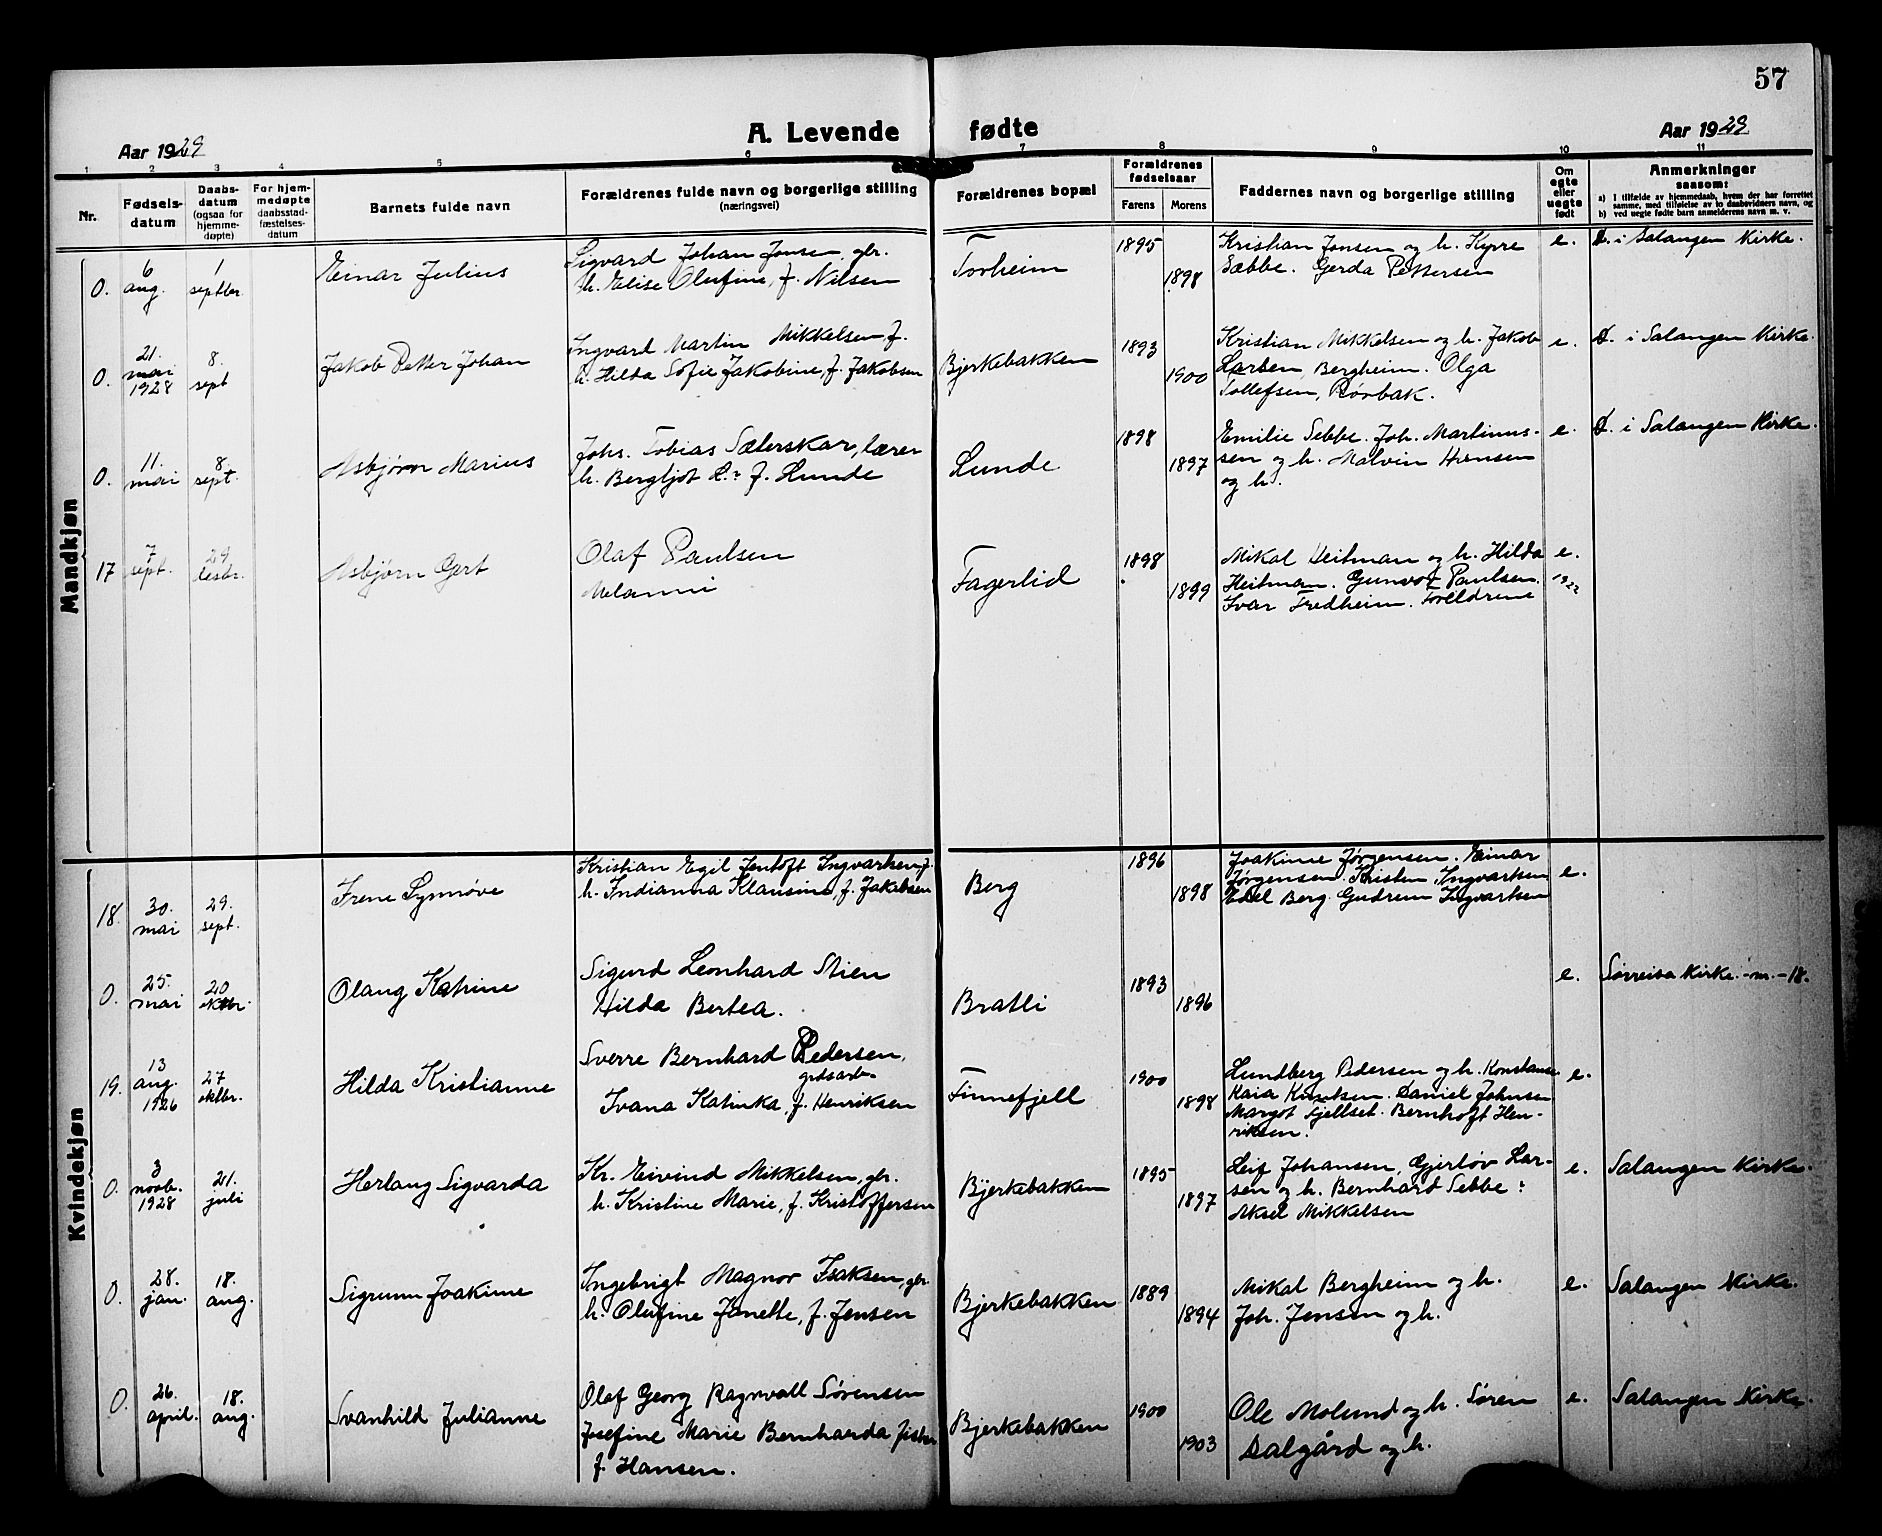 57
A. Levende fødte
Aar 1929
Aar 1929
1 2 3 4 5 6 7 8 9 10 11
Nr.
Fødsels-
datum
Daabs-
datum
(ogsaa for
hjemme-
døpte)
For hjem-
medøpte
daabsstad-
fæstelses-
datum
Barnets fulde navn
Forældrenes fulde navn og borgerlige stilling
(næringsvei)
Forældrenes bopæl
Forældrenes
fødselsaar
Farens
Morens
Faddernes navn og borgerlige stilling
Om
egte
eller
uegte
født
Anmerkninger
saasom:
a) I tilfælde av hjemmedaab, hvem der har forrettet
samme, med tilføielse av to daabsvidners navn, og
b) ved uegte fødte barn anmelderens navn m. v.
Mandkjøn
0.
6
aug.
1
septbr.
Einar Julius
Sigvard Johan Jonsen, gbr.
h. Elise Olufine, f. Nilsen
Torheim
1895
1898
Kristian Jonsen og h. Kyrre
Sæbbe. Gerda Pettersen
e.
D. i Salangen Kirke.
0.
21.
mai
1928
8.
sept
Jakob Petter Johan
Ingvard Martin Mikkelsen, f.
h. Hilda Sofie Jakobine, f. Jakobsen
Bjerkebakken
1893
1900
Kristian Mikkelsen og h. Jakob
Larsen, Bergheim. Olga
Tollefsen, Rørbak.
e.
D. i Salangen Kirke.
0.
11.
mai
8.
sept.
Asbjørn Marius
Johs. Tobias Sæterskar, lærer
h. Bergljot L.: f. Lunde
Lunde
1898
1897
Emilie Sebbe. Joh. Martinus-
sen og h. Malvin Hansen
og h.
e.
D. i Salangen Kirke.
17
7
sept.
29
Asbjørn Gert
Olaf Paulsen
Melanni
Fagerlid
1898
1899
Mikal Heitman og h. Hilda
Heitman. Gunvor Paulsen.
Ivar Fredheim. Forelldrene
e.
1922
Kvindekjøn
18.
30.
mai
29.
sept.
Irene Synnøve
Kristian Egil Jentoft Ingvartsen, f.
h. Indianna Klausine, f. Jakobsen
Berg
1896
1898
Joakime Jørgensen. Einar
Jørgensen. Kristen Ingvartsen
Edel Berg. Gudrun Ingvartsen
e.
0.
25.
mai
20
oktbr.
Olaug Katrine
Sigurd Leonhard Stien
Hilda Bertea.
Bratli
1893
1896
e.
Sørreisa Kirke.-nr.-18.
19.
13
aug.
1926
27
oktbr.
Hilda Kristianne
Sverre Bernhard Pedersen,
grdsarb.
Ivana Katinka, f. Henriksen
Finnefjell
1900
1898
Lundberg Pedersen og h. Konstanse
Kaia Knutsen. Daniel Johnsen
Margot Fjellset. Bernhoft Hen-
riksen.
e.
0.
3
novb.
1928
21.
juli
Herlaug Sigvarda
Kr. Eivind Mikkelsen, gbr.
h. Kristine Marie, f. Kristoffersen
Bjerkebakken
1895
1897
Leif Johansen, Gjerløv Lar-
sen og h. Bernhard Sebbe:
Aksel Mikkelsen
e.
Salangen Kirke.
0.
28.
jan.
18.
aug.
Sigrunn Joakime
Ingebrigt Magnor Isaksen, gbr.
h. Olufine Janette, f. Jensen
Bjerkebakken
1889
1894
Mikal Bergheim og h.
Joh. Jensen og h.
e.
Salangen Kirke.
0.
26.
april.
18.
aug.
Svanhild Julianne
Olaf Georg Ragnvall Sørensen
Josefine Marie Bernharda
f. Hansen.
Bjerkebakken
1900
1903
Ole Molund og h. Søren
Dalgård og h.
e.
Salangen Kirke.